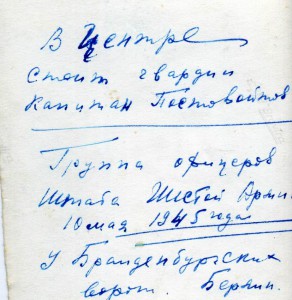 В Центре
стоит гвардии
капитан Постовойтов
Группа офицеров
штаба Шестой Арми
10 мая 1945 года
У Бранденбургских
ворот. Берлин.